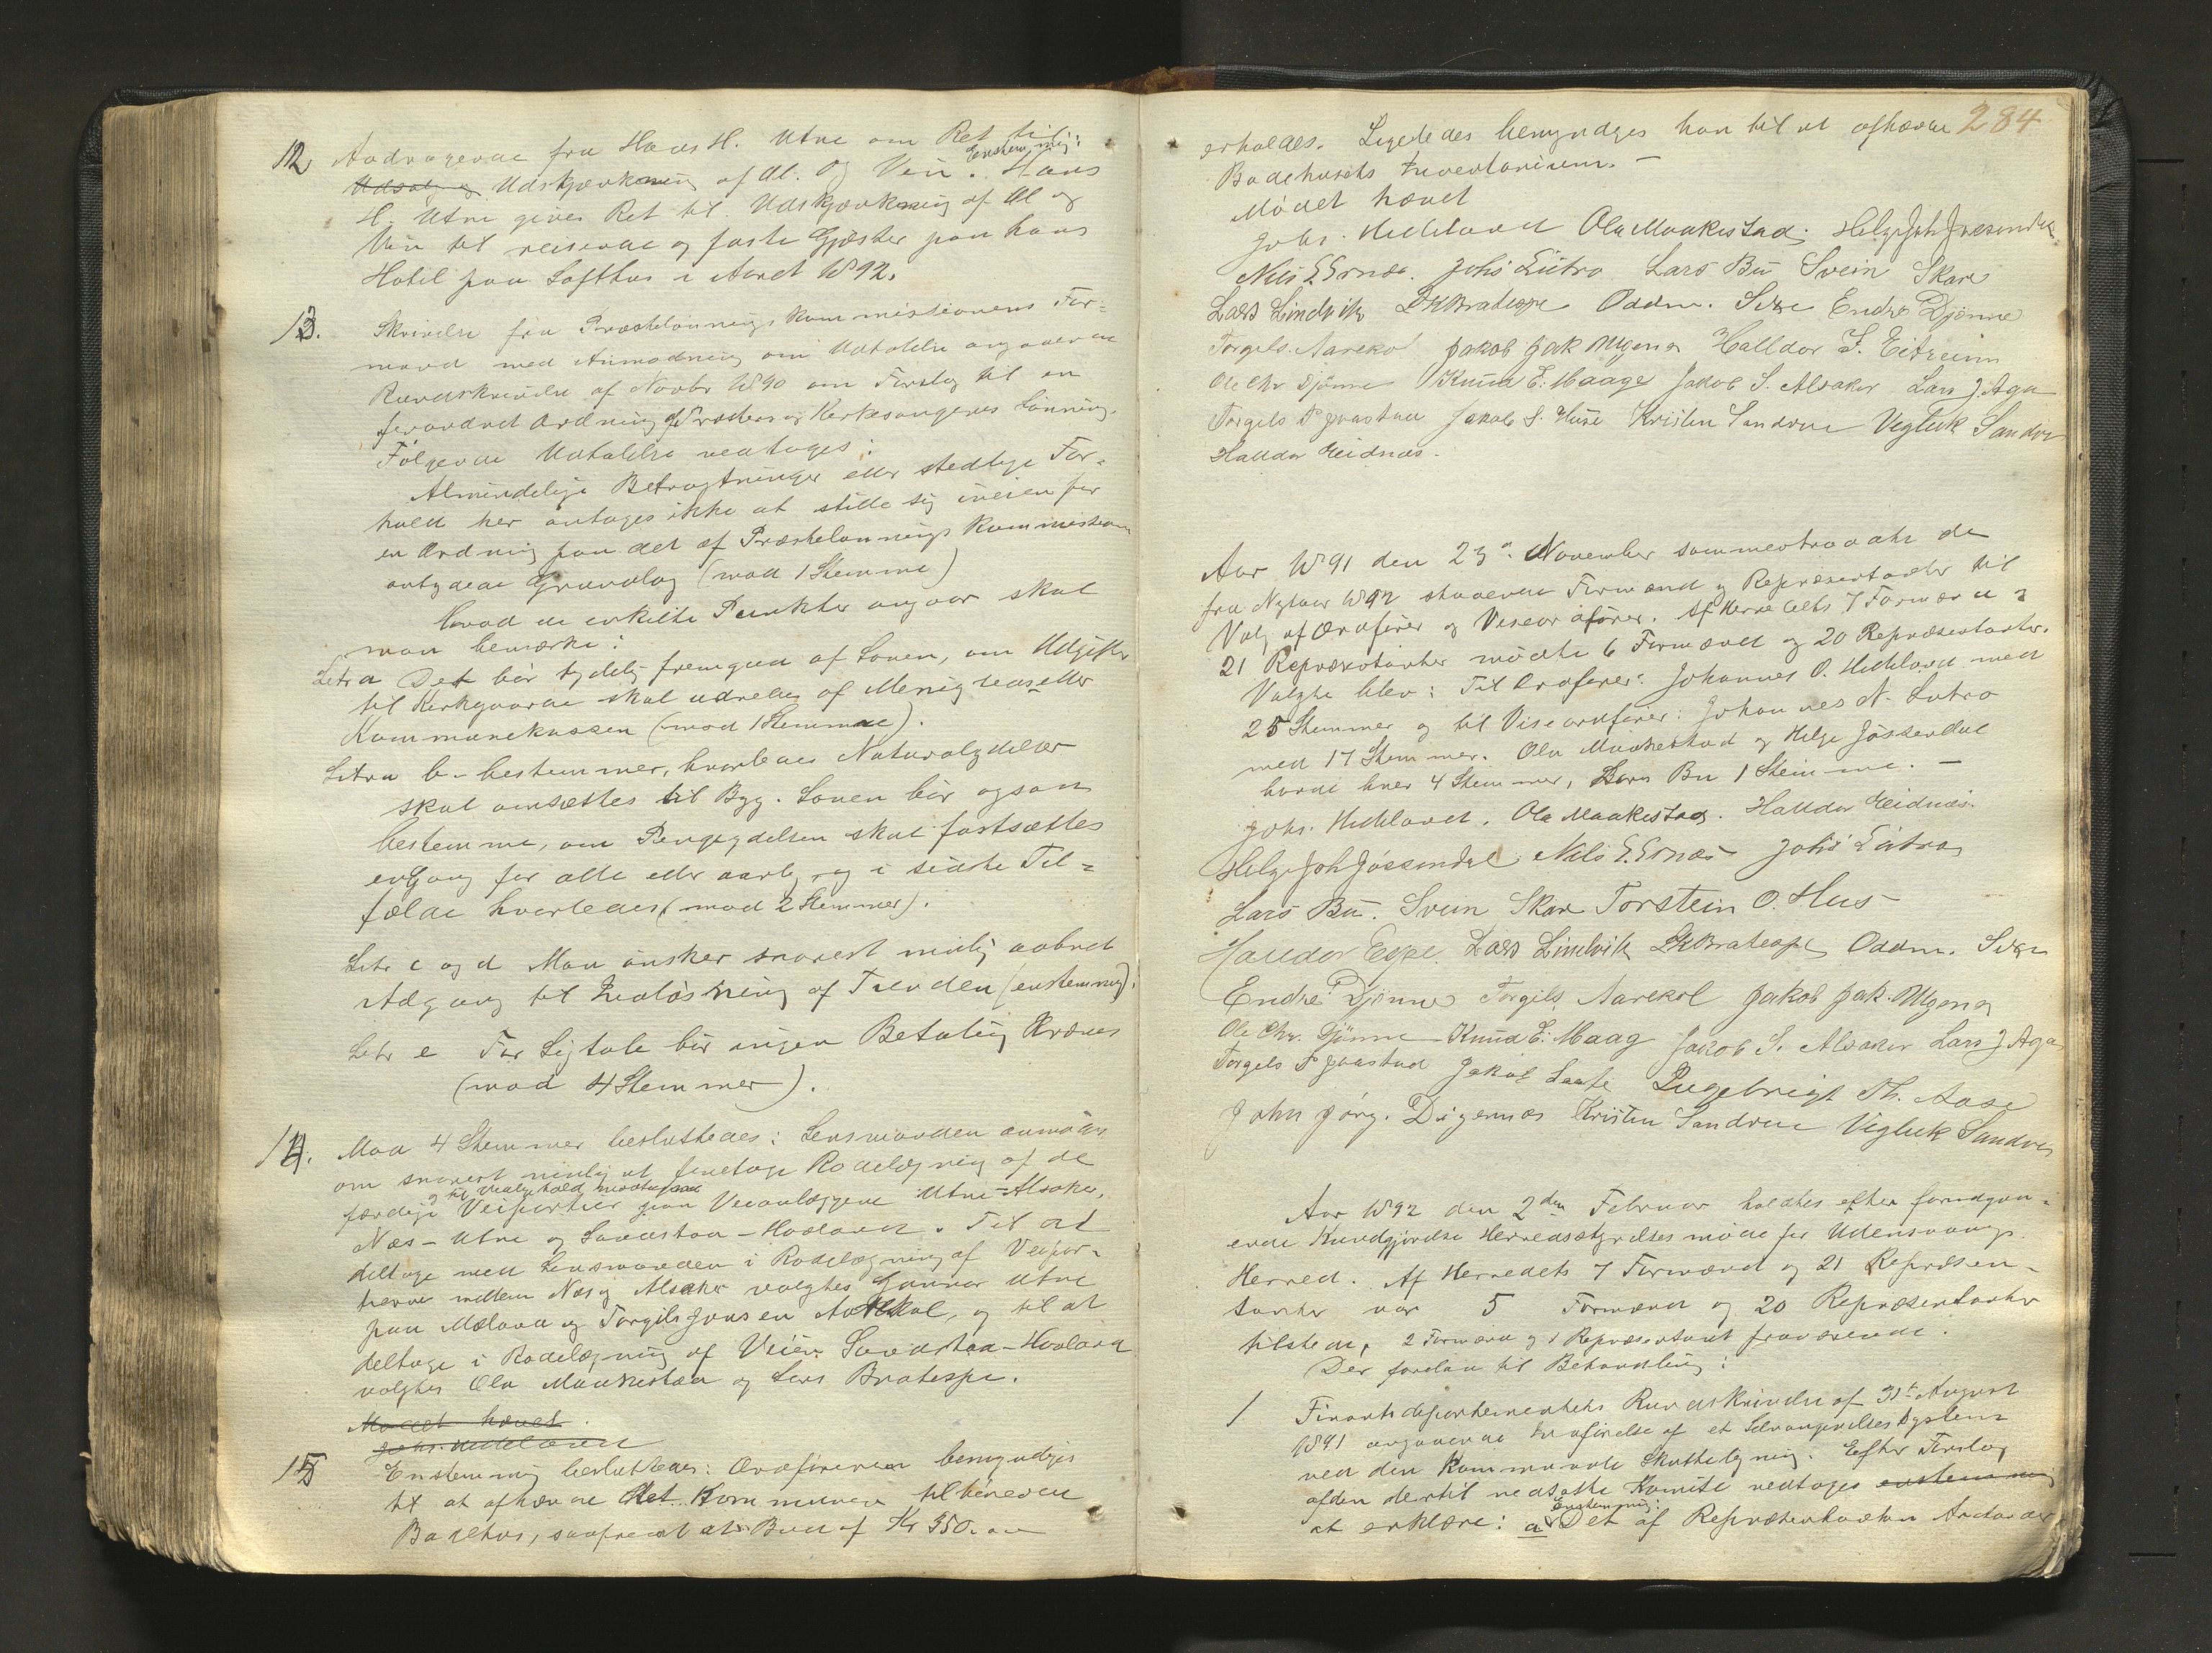 12 Andragende fra Hans H. Utne om Ret til
Udsalg og Udskjænkning af Øl. og Vin. Enstemmig: Hans
H. Utne gives Ret til Udskjænkning af Øl og
Vin til reisende og faste Gjæster paa hans
Hotel paa Lofthus i Aaret 1892.
13. Skrivelse fra Præstelønningskommissionens For=
mand med Anmodning om Udtalelse angaaende
Rundskrivelse af Novbr 1890 om Forslag til en
forandret Ordning af Præsters og Kirkesangeres Lønning.
Følgende Udtalelse vedtages:
Almindelige Betragtninger eller stedlige For=
hold her antages ikke at stille sig iveien for
en Ordning paa det af Præstelønnings Kommissionen
antydede Grundlag (mod 1 Stemme)
Hvad de enkelte Punkter angaar skal
man bemærke:
Litr a Det bør tydelig fremgaa af Loven, om Udgifter
til Kirkegaarde skal udredes af Menigheds- eller
Kommunekassen (mod 1 Stemme).
Litra b - bestemmer, hvorledes Naturalydelser
skal omsættes til Byg. Loven bør ogsaa
bestemme, om Pengeydelsen skal fastsættes
engang for alle eller aarlig og i sidste Til=
fælde hvorledes (mod 2 Stemmer).
Litr c og d Man ønsker snarest mulig aabnet
Adgang til Indløsning af Tienden (enstemmig).
Litr e For Ligtale bør ingen Betaling kræves
(mod 4 Stemmer).
14. Mod 4 Stemmer besluttedes: Lensmanden anmodes
om snarest mulig at foretage Rodelægning af de
og til Vedligehold modtagne
færdige Veiparter paa Veianlæggene Utne-Alsaker,
Næs-Utne og Lovastaa-Hovland. Til at
deltage med Lensmanden i Rodelægning af Veipar=
terne mellem Næs og Alsaker valgtes Gunnar Utne
paa Mæland og Torgils Jonsen Aarekol, og til at
deltage i Rodelægning af Veien Lovastaa-Hovland
valgtes Ola Maakestad og Lars Bratespe.
Mødet hævet.
Johs. Hedeland
15 Enstemmig besluttedes: Ordføreren bemyndiges
til at afhænde det Kommunen tilhørende
Badehus, saafremt et Bud af Kr 350.00
284
erholdes. Ligeledes bemyndiges han til at afhænde
Badehusets Inventarium. -
Mødet hævet
Johs. Hedeland Ola Maakestad. Helge Joh Jøssendal
Nils E Ernæs. Johs Lútro Lars Bú Svein Skare
Lars Lindvik LKBratespe Oddm. Sexe Endre Djønne
Torgils. Aarekol Jakob Jak Mgena Halldor J. Eitreim
Ole Chr. Djønne Knud E. Haage Jakob S. Alsaker Lars J. Aga
Torgils P Jaastad Jakob S. Huse Kristen Sandven Vigleik Sandven
Halldor Eidnæs.
Aar 1891 den 23de November sammentraadte de
fra Nytaar 1892 staaende Formænd og Repræsentanter til
Valg af Ordfører og Viseordfører. Af Herredets 7 Formænd og
21 Repræsentanter mødte 6 Formænd og 20 Repræsentanter.
Valgte blev: Til Ordfører: Johannes O. Hedeland med
25 Stemmer og til Viseordfører: Johannes N. Lutro
med 17 Stemmer. Ola Maakestad og Helge Jøssendal
havde hver 4 Stemmer, Lars Bu 1 Stemme. -
Johs. Hedeland. Ola Maakestad. Halldor Eidnæs.
Helge Joh Jøssendal Nils E. Ernæs Johs Lútro
Lars Bú. Svein Skare Torstein O. Hus
Halldor Espe. Lars Lindvik LKBratespe Oddm. Sexe
Endre Djønne Torgils Aarekol Jakob Jak. Mgena
Ole Chr. Djønne Knud E. Haag Jakob S. Alsaker Lars J Aga
Torgils P Jaastad Jakob Laate Ingebrigt Th. Aase
John Jørg. Digernæs Kristen Sandven Vigleik Sandven
Aar 1892 den 2den Februar holdtes efter forudgaa=
ende Kundgjørelse Herredsstyrelsesmøde for Udensogns
Herred. Af Herredets 7 Formænd og 21 Repræsen-
tanter var 5 Formænd og 20 Repræsentanter
tilstede, 2 Formænd og 1 Repræsentant fraværende.
Der forelaa til Behandling:
1 Finantsdepartementets Rundskrivelse af 31te August
1891 angaaende Indførelse af et Selvangivelses System
ved den Kommunale Skattelægning. Efter Forslag
af den dertil nedsatte Komite vedtages enstemmig
at erklære: Enstemmig: a) Det af Repræsentanten Arctander